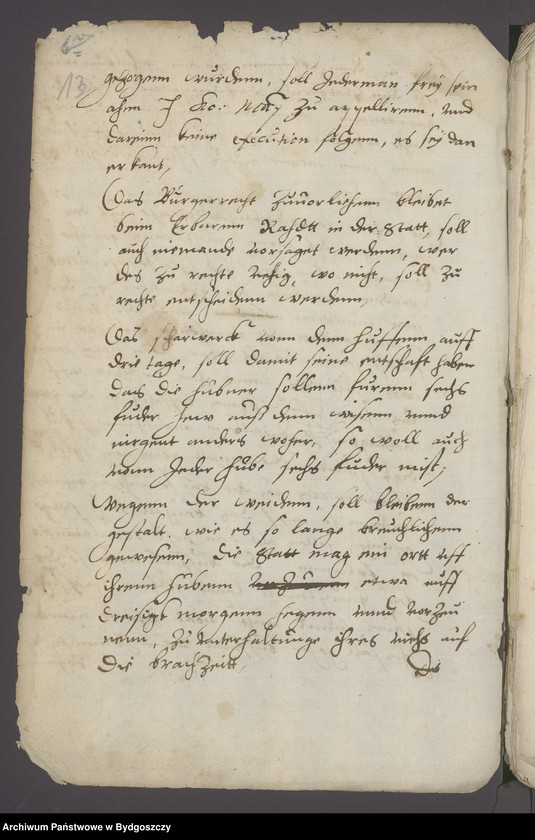 13
gezogenn wurdenn, soll Jederman frey sein
ahnn J Ko: May zu appellirenn, und
dareinn keine execution folgenn, es sey dan
erkant,
Das Burgerrecht zuuorlichenn bleibet
beim Erbarnn Rahdtt in der Statt, soll
auch niemande vorsaget werdenn, wer
des zu rechte vehig, wo nicht, soll zu
rechte entscheidenn werdenn,
Das scharwerck vonn denn huffenn auff
drie tage, soll damit seine entschaft haben
das die hubner sollenn furenn sechs
fuder hew auß denn wisenn unnd
nirgent anders woher, so woll auch
vonn Jeder hube sechs fuder mist,
Wegenn der weidenn, soll bleibenn der
gestalt, wie es so lange breuchlichenn
gewesenn, die Statt mag ein ortt uff
ihrenn hubenn etwa auff
dreisigk morgenn hegenn unnd vorzeu
nenn, zu unterhaltunge ihres viehs auf
die brachzeitt,
Die
Archiwum Państwowe w Bydgoszczy